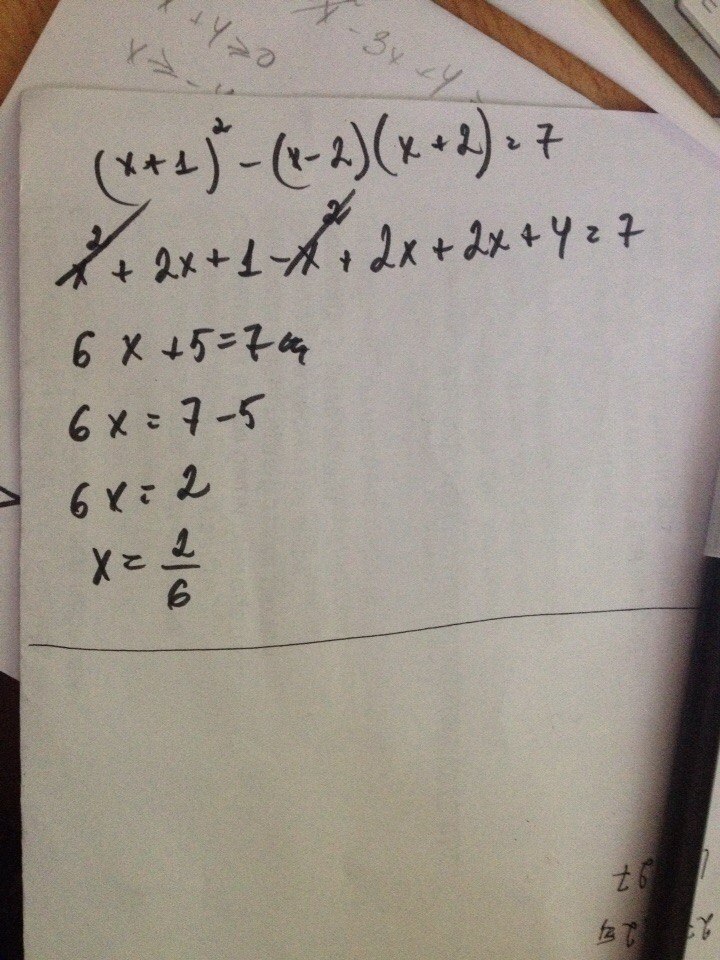 +y≥0
x≥-
-3x+y
(x+1)² - (x-2)(x+2) = 7
x² + 2x + 1 - x² + 2x + 2x + 4 = 7
6x + 5 = 7
6x = 7 - 5
6x = 2
x = 2/6